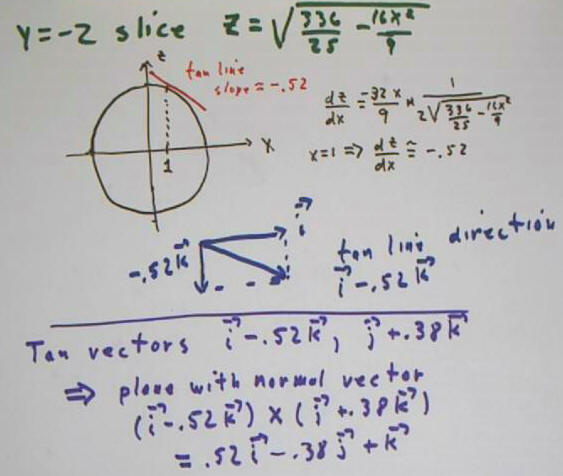 y=-2 slice z=√(336/25 - 16x²/9)
z
tan line
slope ≈ -.52
dz/dx = -32x/9 * 1/(2√(336/25 - 16x²/9))
x=1 => dz/dx ≅ -.52
x
1
i⃗
-.52k⃗
tan line direction
i⃗ -.52k⃗
Tan vectors i⃗ -.52k⃗, j⃗ +.38k⃗
⇒ plane with normal vector
(i⃗ -.52k⃗) × (j⃗ +.38k⃗)
= .52i⃗ -.38j⃗ + k⃗